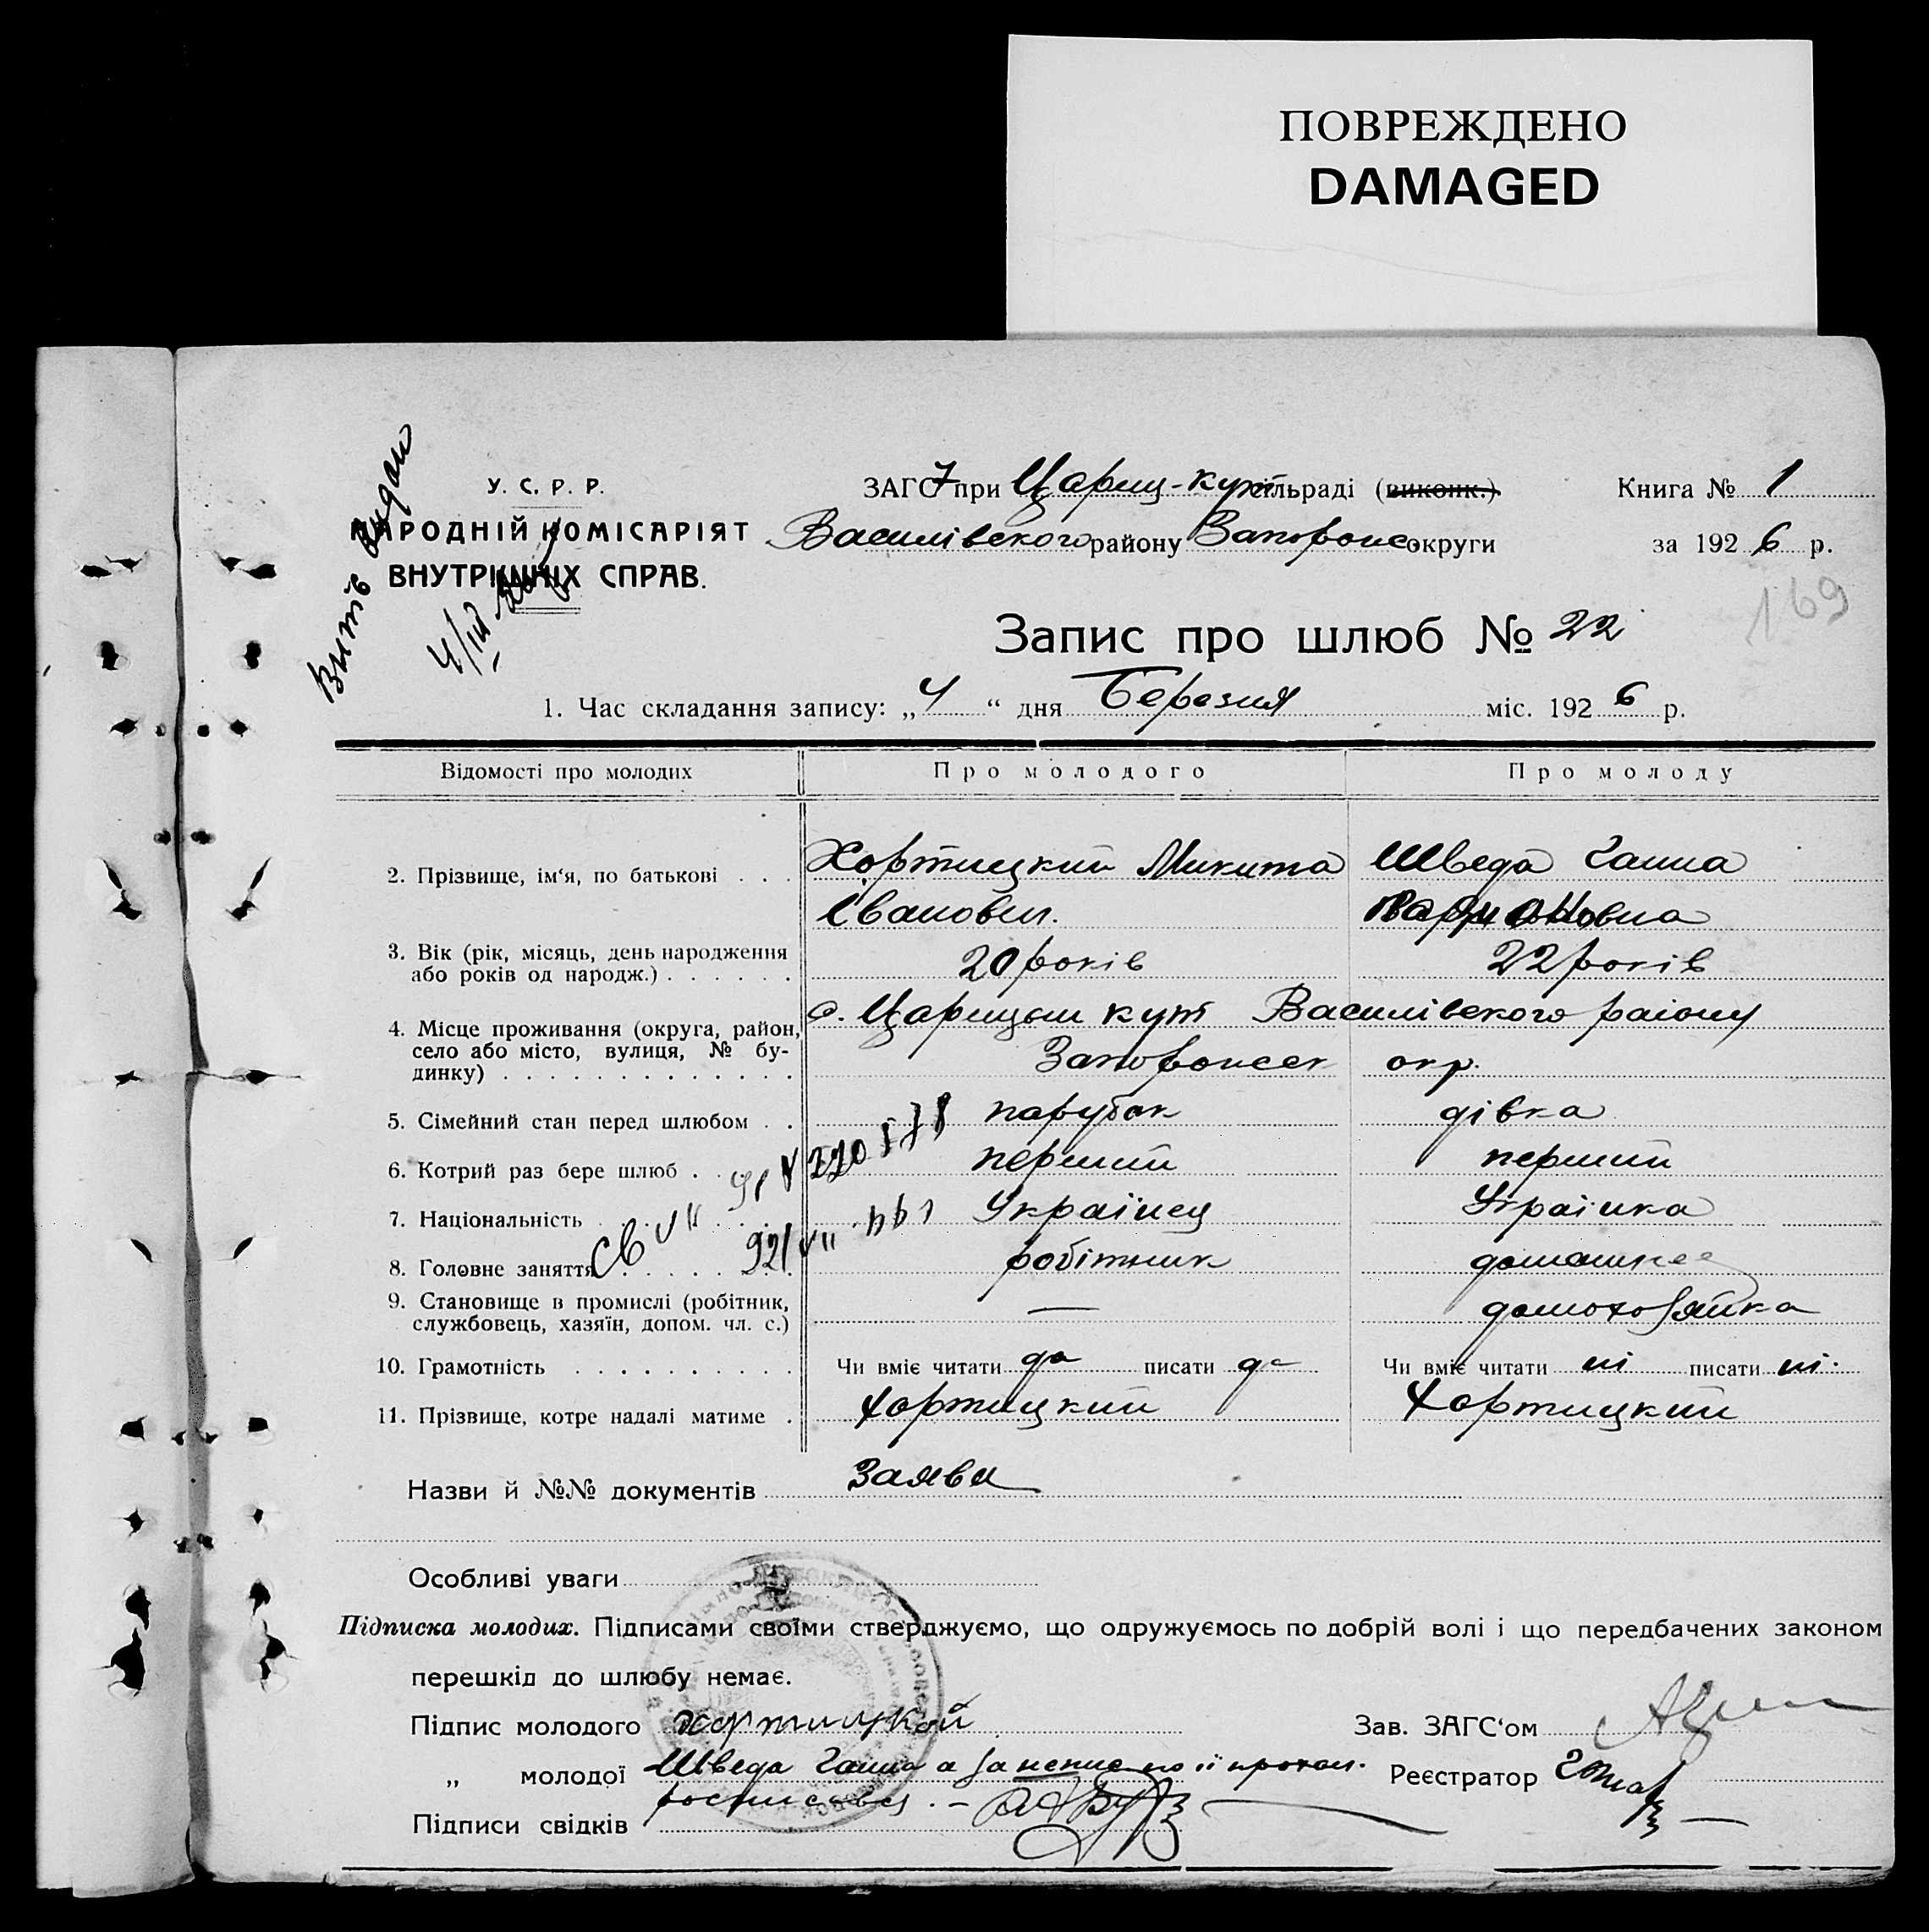 ПОВРЕЖДЕНО
DAMAGED
Витяг видан
4/III
У. С. Р. Р.
НАРОДНІЙ КОМІСАРІЯТ
ВНУТРІШНІХ СПРАВ.
ЗАГС 7 при Цариц-кут сільраді (виконк.)
Василівского району Запорожс округи
Книга № 1
за 1926 р.
169
Запис про шлюб № 22
1. Час складання запису: „4“ дня Березня міс. 1926 р.
Відомості про молодих Про молодого Про молоду
2. Прізвище, ім‘я, по батькові . . . Хортицкий Микита Шведа Ганна
Іванович.
3. Вік (рік, місяць, день народження або років од народж.) . . . . . . 20 років 22 років
4. Місце проживання (округа, район, с. Царицын кут Василівского раіону
село або місто, вулиця, № бу-
динку) . . . . . . . . . . . . . Запорожск окр.
5. Сімейний стан перед шлюбом . . парубок дівка
6. Котрий раз бере шлюб . . перший перший
7. Національність Україиец Українка
8. Головне заняття робітник
9. Становище в промислі (робітник, — домохозяйка
службовець, хазяїн, допом. чл. с.)
10. Грамотність . . . . . . . . . . Чи вміє читати да писати да Чи вміє читати ні писати ні.
11. Прізвище, котре надалі матиме . Хортицкий Хортицкий
Назви й №№ документів Заява
Особливі уваги
Підписка молодих. Підписами своїми стверджуємо, що одружуємось по добрій волі і що передбачених законом
перешкід до шлюбу немає.
Підпис молодого Хортицкой Зав. ЗАГС‘ом
„ молодої Шведа Ганна а за непис по її прохан. Реєстратор
росписався . —
Підписи свідків